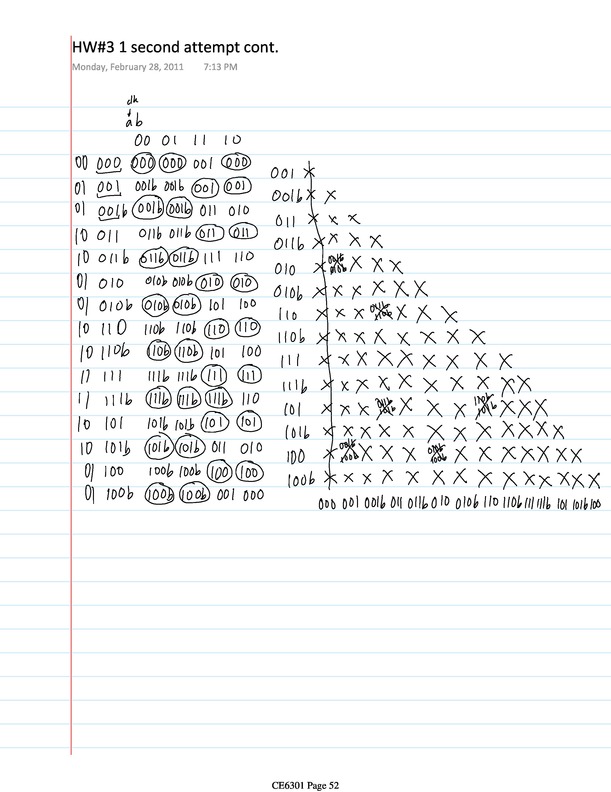 HW#3 1 second attempt cont.
Monday, February 28, 2011 7:13 PM
clk
ab
00 01 11 10
00 000 000 000 001 000
01 001 001b 001b 001 001
01 001b 001b 001b 011 010
10 011 011b 011b 011 011
10 011b 011b 011b 111 110
01 010 010b 010b 010 010
01 010b 010b 010b 101 100
10 110 110b 110b 110 110
10 110b 110b 110b 101 100
11 111 111b 111b 111 111
11 111b 111b 111b 111b 110
10 101 101b 101b 101 101
10 101b 101b 101b 011 010
01 100 100b 100b 100 100
01 100b 100b 100b 001 000
001 X
001b X X
011 X X X
011b X X X X
010 X 001b 010b X X X
010b X X X X X X
110 X X X 011b 110b X X X
110b X X X X X X X X
111 X X X X X X X X X
111b X X X X X X X X X X
101 X X X 011b 101b X X X 110b 101b X X X
101b X X X X X X X X X X X X
100 X 001b 100b X X X 010b 100b X X X X X X X
100b X X X X X X X X X X X X X X
000 001 001b 011 011b 010 010b 110 110b 111 111b 101 101b 100
CE6301 Page 52